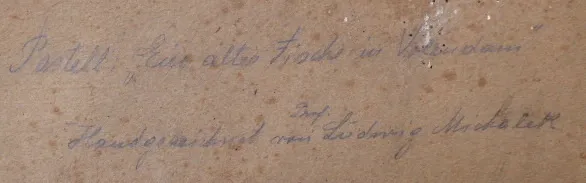 Pastell „Ein alter Fischer in Volendam"
Prof.
Handgezeichnet von Ludwig Michalek